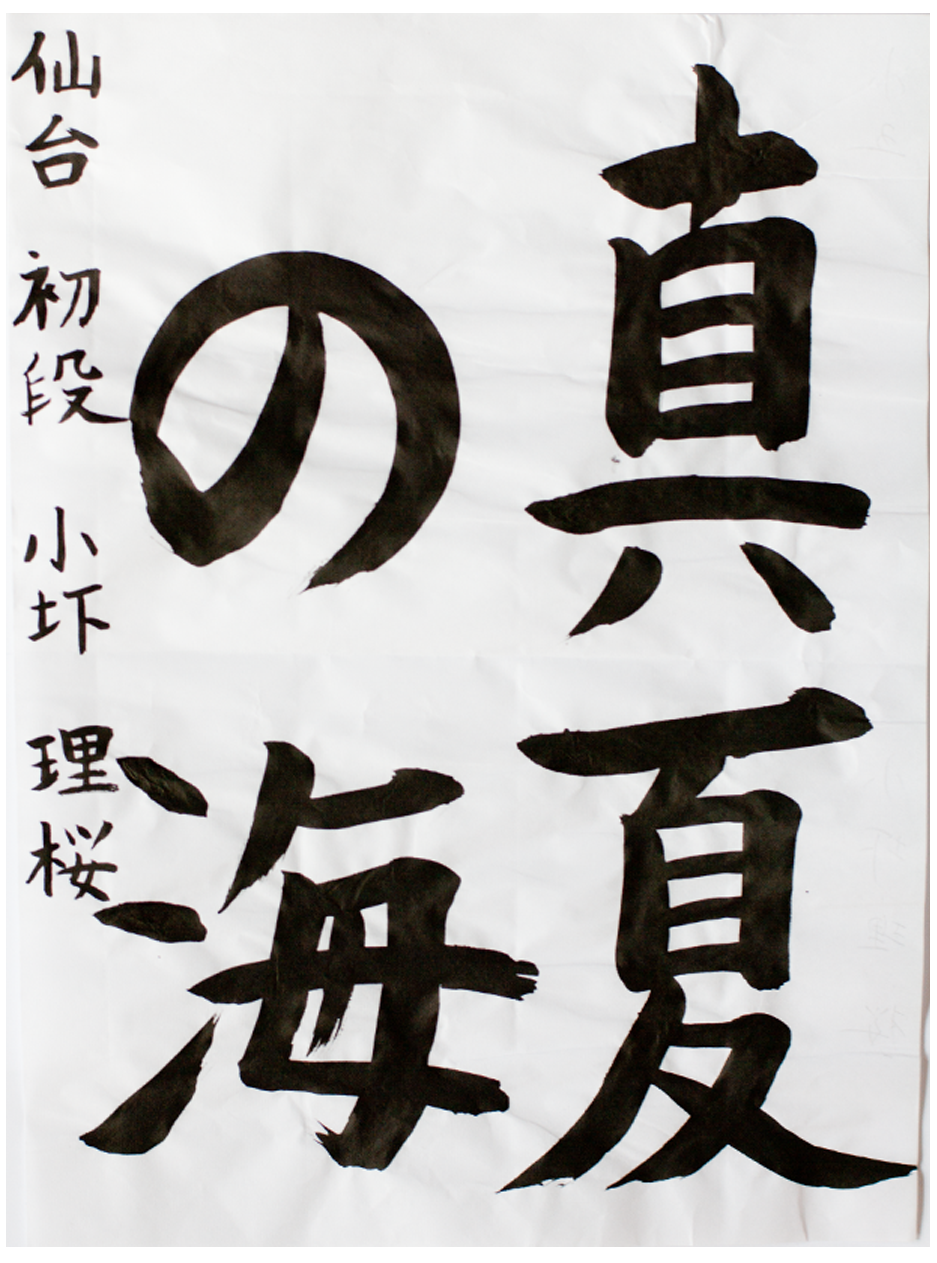 真夏
の海
仙台 初段 小圷 理桜